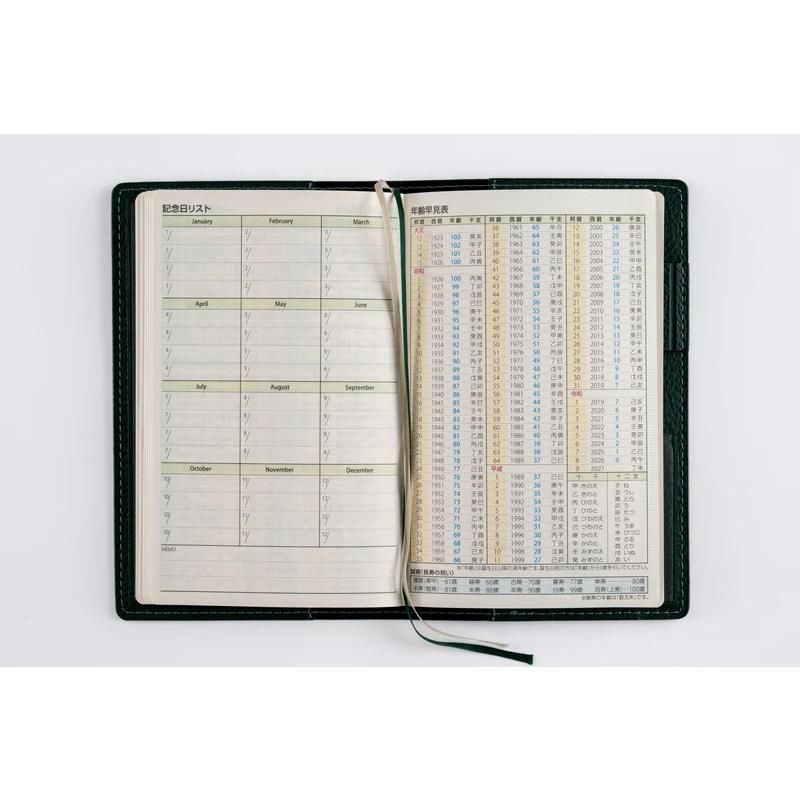 記念日リスト
January February March
1/ 2/ 3/
1/ 2/ 3/
1/ 2/ 3/
1/ 2/ 3/
April May June
4/ 5/ 6/
4/ 5/ 6/
4/ 5/ 6/
4/ 5/ 6/
July August September
7/ 8/ 9/
7/ 8/ 9/
7/ 8/ 9/
7/ 8/ 9/
October November December
10/ 11/ 12/
10/ 11/ 12/
10/ 11/ 12/
10/ 11/ 12/
MEMO
年齢早見表
邦暦 西暦 年齢 干支
大正
12 1923 103 癸亥
13 1924 102 甲子
14 1925 101 乙丑
15 1926 100 丙寅
昭和
1 1926 100 丙寅
2 1927 99 丁卯
3 1928 98 戊辰
4 1929 97 己巳
5 1930 96 庚午
6 1931 95 辛未
7 1932 94 壬申
8 1933 93 癸酉
9 1934 92 甲戌
10 1935 91 乙亥
11 1936 90 丙子
12 1937 89 丁丑
13 1938 88 戊寅
14 1939 87 己卯
15 1940 86 庚辰
16 1941 85 辛巳
17 1942 84 壬午
18 1943 83 癸未
19 1944 82 甲申
20 1945 81 乙酉
21 1946 80 丙戌
22 1947 79 丁亥
23 1948 78 戊子
24 1949 77 己丑
25 1950 76 庚寅
26 1951 75 辛卯
27 1952 74 壬辰
28 1953 73 癸巳
29 1954 72 甲午
30 1955 71 乙未
31 1956 70 丙申
32 1957 69 丁酉
33 1958 68 戊戌
34 1959 67 己亥
35 1960 66 庚子
邦暦 西暦 年齢 干支
36 1961 65 辛丑
37 1962 64 壬寅
38 1963 63 癸卯
39 1964 62 甲辰
40 1965 61 乙巳
41 1966 60 丙午
42 1967 59 丁未
43 1968 58 戊申
44 1969 57 己酉
45 1970 56 庚戌
46 1971 55 辛亥
47 1972 54 壬子
48 1973 53 癸丑
49 1974 52 甲寅
50 1975 51 乙卯
51 1976 50 丙辰
52 1977 49 丁巳
53 1978 48 戊午
54 1979 47 己未
55 1980 46 庚申
56 1981 45 辛酉
57 1982 44 壬戌
58 1983 43 癸亥
59 1984 42 甲子
60 1985 41 乙丑
61 1986 40 丙寅
62 1987 39 丁卯
63 1988 38 戊辰
64 1989 37 己巳
平成
1 1989 37 己巳
2 1990 36 庚午
3 1991 35 辛未
4 1992 34 壬申
5 1993 33 癸酉
6 1994 32 甲戌
7 1995 31 乙亥
8 1996 30 丙子
9 1997 29 丁丑
10 1998 28 戊寅
11 1999 27 己卯
邦暦 西暦 年齢 干支
12 2000 26 庚辰
13 2001 25 辛巳
14 2002 24 壬午
15 2003 23 癸未
16 2004 22 甲申
17 2005 21 乙酉
18 2006 20 丙戌
19 2007 19 丁亥
20 2008 18 戊子
21 2009 17 己丑
22 2010 16 庚寅
23 2011 15 辛卯
24 2012 14 壬辰
25 2013 13 癸巳
26 2014 12 甲午
27 2015 11 乙未
28 2016 10 丙申
29 2017 9 丁酉
30 2018 8 戊戌
31 2019 7 己亥
令和
1 2019 7 己亥
2 2020 6 庚子
3 2021 5 辛丑
4 2022 4 壬寅
5 2023 3 癸卯
6 2024 2 甲辰
7 2025 1 乙巳
8 2026 0 丙午
9 2027 丁未
十干 十二支
甲 きのえ 子 ね
乙 きのと 丑 うし
丙 ひのえ 寅 とら
丁 ひのと 卯 う
戊 つちのえ 辰 たつ
己 つちのと 巳 み
庚 かのえ 午 うま
辛 かのと 未 ひつじ
壬 みずのえ 申 さる
癸 みずのと 酉 とり
戌 いぬ
亥 い
※「年齢」は誕生日以降の満年齢です。誕生日前の方は「年齢」から1歳を引いてください。
賀寿(長寿の祝い)
還暦(華甲)…61歳 緑寿…66歳 古稀…70歳 喜寿…77歳 傘寿…80歳
半寿(盤寿)…81歳 米寿…88歳 卒寿…90歳 白寿…99歳 百寿(上寿)…100歳
※賀寿の年齢は「数え年」です。